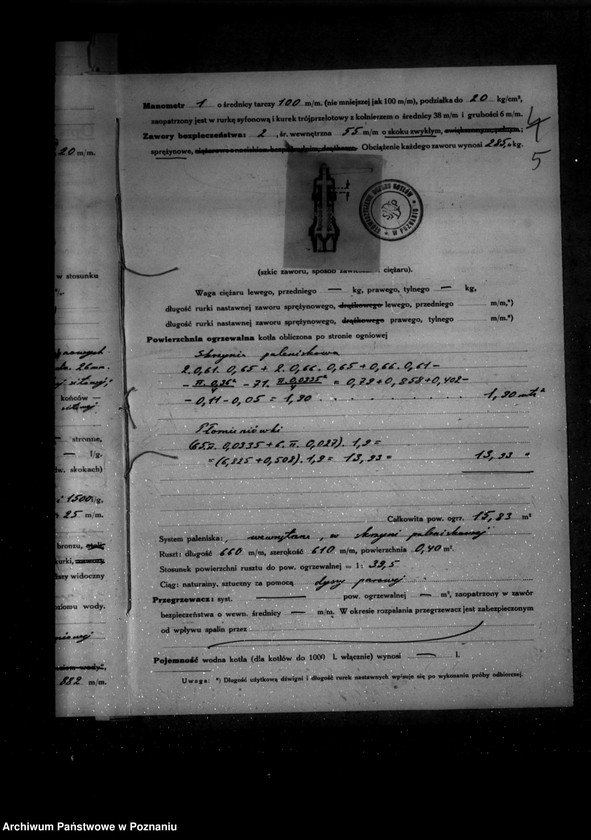 Manometr 1 o średnicy tarczy 100 m/m. (nie mniejszej jak 100 m/m), podsiałka do 20 kg/cm²,
zaopatrzony jest w rurkę syfonową i kurek trójprzelotowy z kołnierzem o średnicy 38 m/m i grubości 6 m/m.
4
Zawory bezpieczeństwa: 2, śr. wewnętrzna 55 m/m o skoku zwykłym,
sprężynowe, Obciążenie każdego zaworu wynosi kg.
5
W POZNANIU
(szkic zaworu, sposób ciężaru).
Waga ciężaru lewego, przedniego — kg, prawego, tylnego — kg,
długość rurki nastawnej zaworu sprężynowego, drążkowego lewego, przedniego m/m,*)
długość rurki nastawnej zaworu sprężynowego, drążkowego prawego, tylnego m/m.*)
Powierzchnia ogrzewalna kotła obliczona po stronie ogniowej
Skrzynia paleniskowa
2.0,61. 0,65 + 2.0,66. 0,65 + 0,66. 0,61 -
= 0,79 + 0,858 + 0,402 -
- 0,11 - 0,05 = 1,90 1,90 mtr²
Płomieniówki
(65π. 0,0335 + 6. π. 0,027). 1,9 =
= (6,825 + 0,508). 1,9 = 13,93 = 13,93 "
Całkowita pow. ogrz. 15,83 m²
System paleniska: wewnętrzne, w skrzyni paleniskowej
Ruszt: długość 660 m/m, szerokość 610 m/m, powierzchnia 0,40 m².
Stosunek powierzchni rusztu do pow. ogrzewalnej = 1: 39,5
Ciąg: naturalny, sztuczny za pomocą dyszy parowej
Przegrzewacz: syst. — pow. ogrzewalnej — m², zaopatrzony w zawór
bezpieczeństwa o wewn. średnicy — m/m. W okresie rozpalania przegrzewacz jest zabezpieczony
od wpływu spalin przez
Pojemność wodna kotła (dla kotłów do 100 l. włącznie) wynosi — l.
Uwaga: *) Długość użytkową dźwigni i długość rurek nastawnych wpisuje się po wykonaniu próby odbiorczej.
20 m/m.
w stosunku
końców —
stronne,
— l/g.
w. skokach)
1500 l/g,
25 m/m.
bronzu,
kurki,
szy widoczny
ziomu wody.
882 m/m.
Archiwum Państwowe w Poznaniu